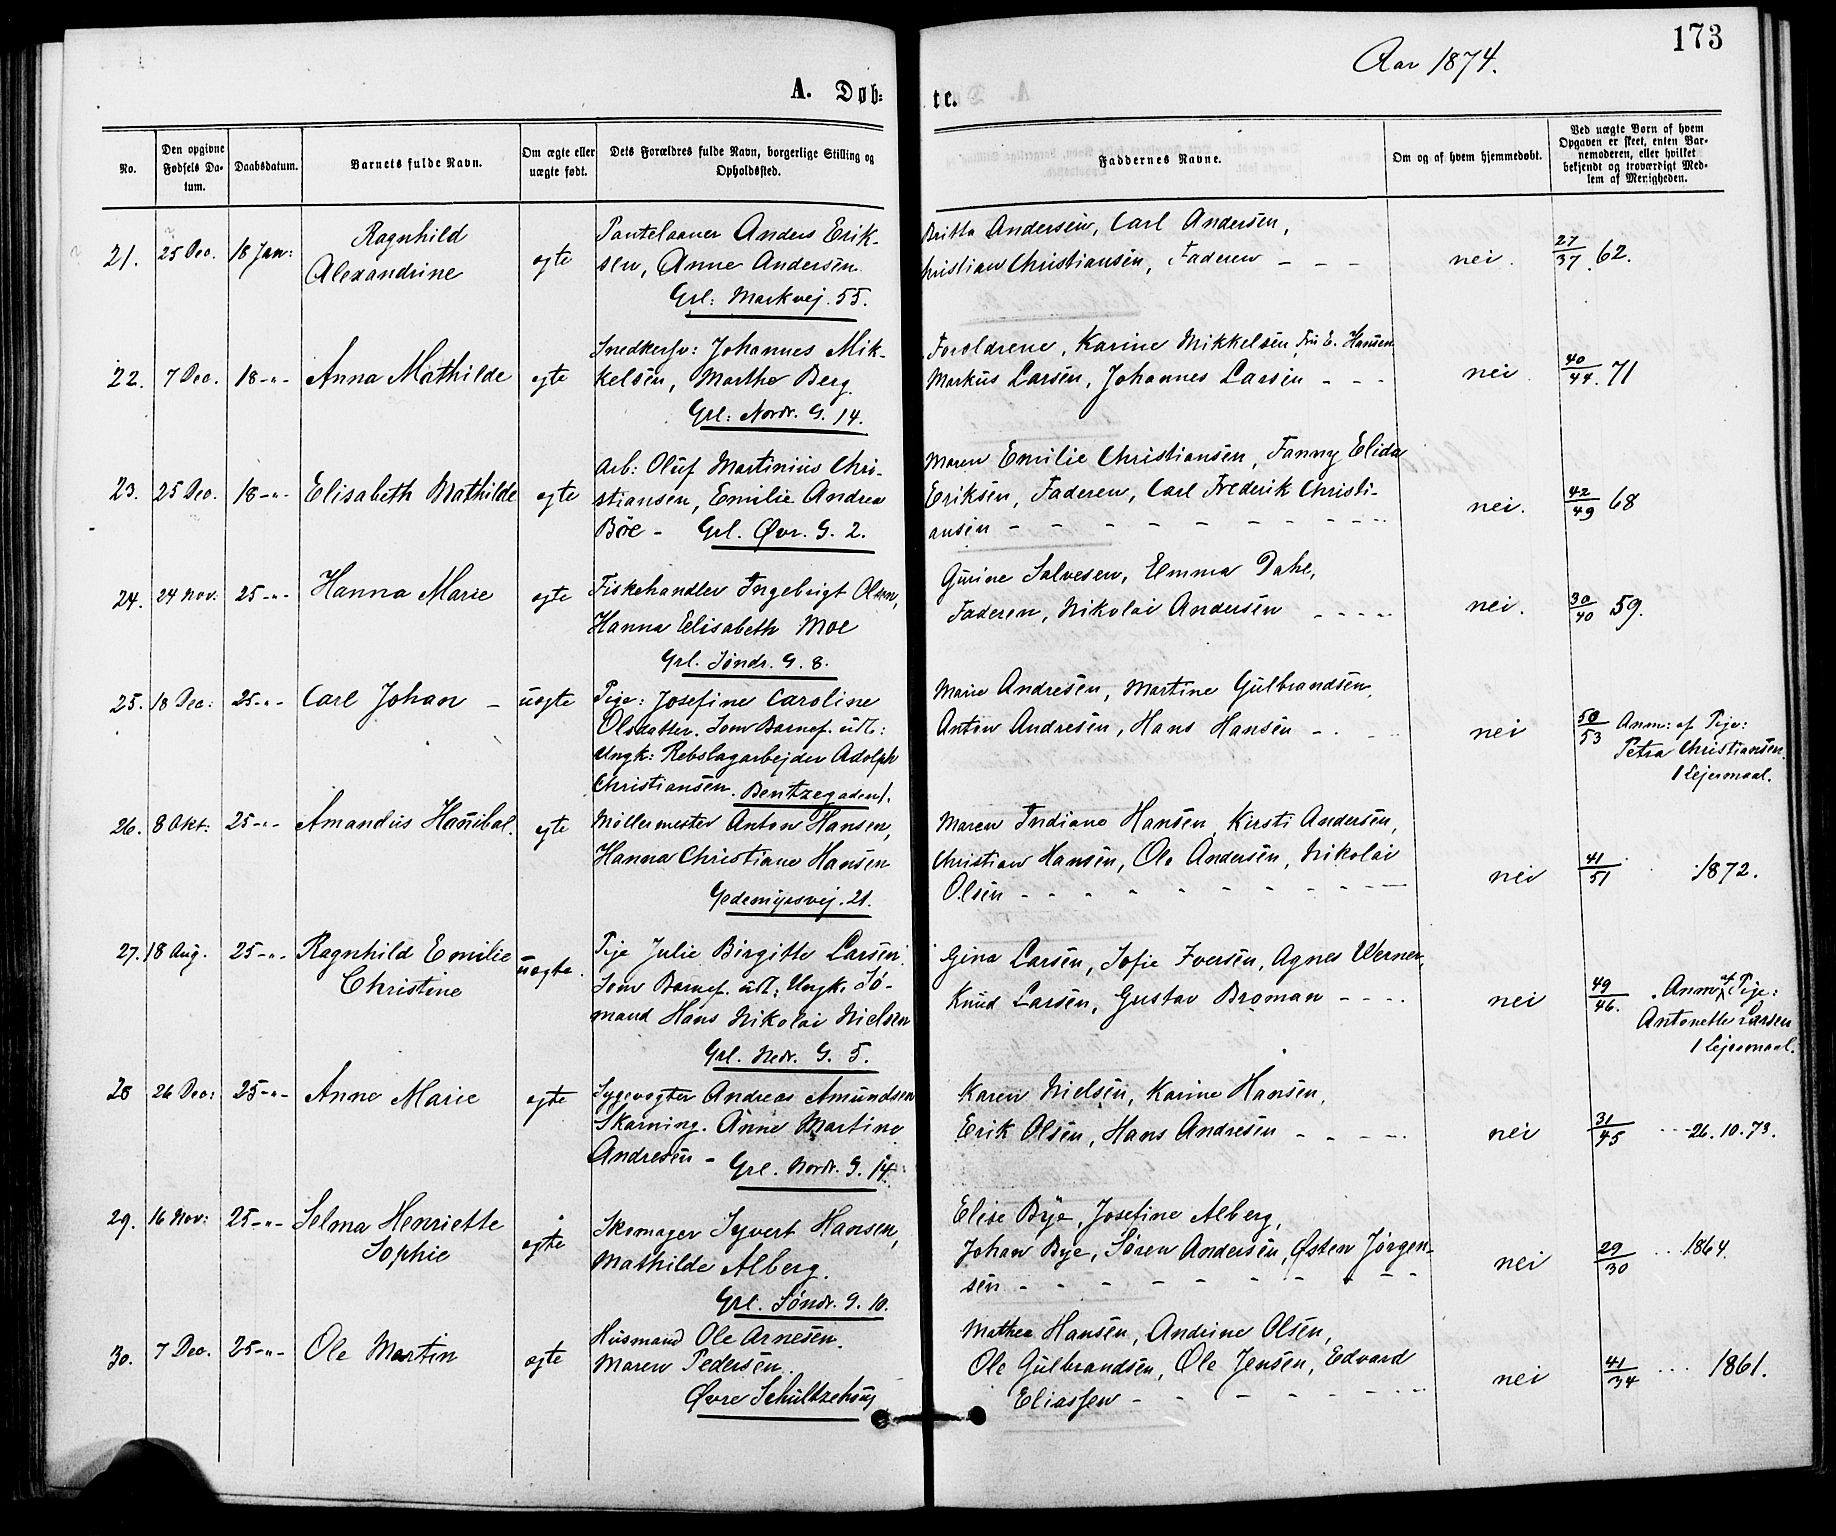 173
Aar 1874.
A. Døb-
te.
No.
Den opgivne Fødsels Da-
tum.
Daabsdatum.
Barnets fulde Navn.
Om ægte eller
uægte født.
Dets Forældres fulde Navn, borgerlige Stilling og
Opholdssted.
Faddernes Navne.
Om og af hvem hjemmedøbt.
Ved uægte Børn af hvem
Opgaven er skeet, enten Bar-
nemoderen, eller hvilket
bekjendt og troværdigt Med-
lem af Menigheden.
21. 25 Dec. 18 Jan:
Ragnhild
Alexandrine
egte
Pantelaaner Anders Erik-
sen, Anne Andersen
Grl: Markvej. 55.
Britta Andersen, Carl Andersen,
Christian Christiansen, Faderen - - -
nei.
27/37. 62.
22. 7 Dec. 18 -"-
Anna Mathilde
egte
Snedkersv: Johannes Mik-
kelsen, Marthe Berg.
Grl: Nordr. G. 14.
Foreldrene, Karine Mikkelsen, Fru E. Hansen
Markus Larsen, Johannes Larsen - - -
nei.
40/44. 71
23. 25 Dec. 18 -"-
Elisabeth Mathilde
egte
Arb: Oluf Martinius Chri-
stiansen, Emilie Andrea
Böe - Grl. Øvr. G. 2.
Maren Emilie Christiansen, Fanny Elida
Eriksen, Faderen, Carl Frederik Christi-
ansen - - - - - - - - -
nei.
42/49 68
24. 24 Nov: 25 -"-
Hanna Marie
egte
Fiskehandler Ingebrigt Olsen,
Hanna Elisabeth Moe
Grl. Søndr. G. 8.
Gurine Salvesen, Emma Dahl,
Faderen, Nikolai Andersen - - - -
nei.
30/40 59.
25. 18 Dec: 25 -"-
Carl Johan -
uegte
Pige: Josefine Caroline
Olsdatter. Som Barnef. udl:
Ungk: Rebslagarbejder Adolph
Christiansen. Bentzegaden 1.
Marie Andresen, Martine Gulbrandsen,
Anton Andresen, Hans Hansen - - -
nei
50/53 Anm: af Pige:
Petra Christiansen
1 Lejermaal.
26. 8 Okt: 25 -"-
Amandus Hanibal.
egte
Möllermester Anton Hansen,
Hanna Christiane Hansen
Gedemyrsvej. 21.
Maren Indiane Hansen, Kirsti Andersen,
Christian Hansen, Ole Andersen, Nikolai
Olsen - - - - - - - -
nei
41/51 1872.
27. 18 Aug. 25 -"-
Ragnhild Emilie
Christine
uegte.
Pige Julie Birgitte Larsen.
Som Barnef. udl: Ungk. Sø-
mand Hans Nikolai Nielsen
Grl. Nedr. G. 5.
Gina Larsen, Sofie Iversen, Agnes Werner,
Knud Larsen, Gustav Broman - - - -
nei
49/46. Anm af Pige:
Antonette Larsen
1 Lejermaal.
28 26 Dec: 25 -"-
Anne Marie
egte
Sygevogter Andreas Amundsen
Skarning. Anne Martine
Andresen - Grl. Nordr. G. 14.
Karen Nielsen, Karine Hansen,
Erik Olsen, Hans Andresen - - - - -
nei
31/45 26. 10. 73.
29. 16 Nov: 25 -"-
Selma Henriette
Sophie
egte
Skomager Syvert Hansen,
Mathilde Alberg.
Grl. Söndr. G. 10.
Elise Bye, Josefine Alberg,
Johan Bye, Søren Andersen, Østen Jørgen-
sen - - - - - - - - -
nei
29/30 1864.
30. 7 Dec. 25 -"-
Ole Martin
egte
Husmand Ole Arnesen.
Maren Pedersen.
Øvre Schultzehaug
Mathea Hansen, Andrine Olsen,
Ole Gulbrandsen, Ole Jensen, Edvard
Eliassen - - - - - - -
nei
41/34 1861.